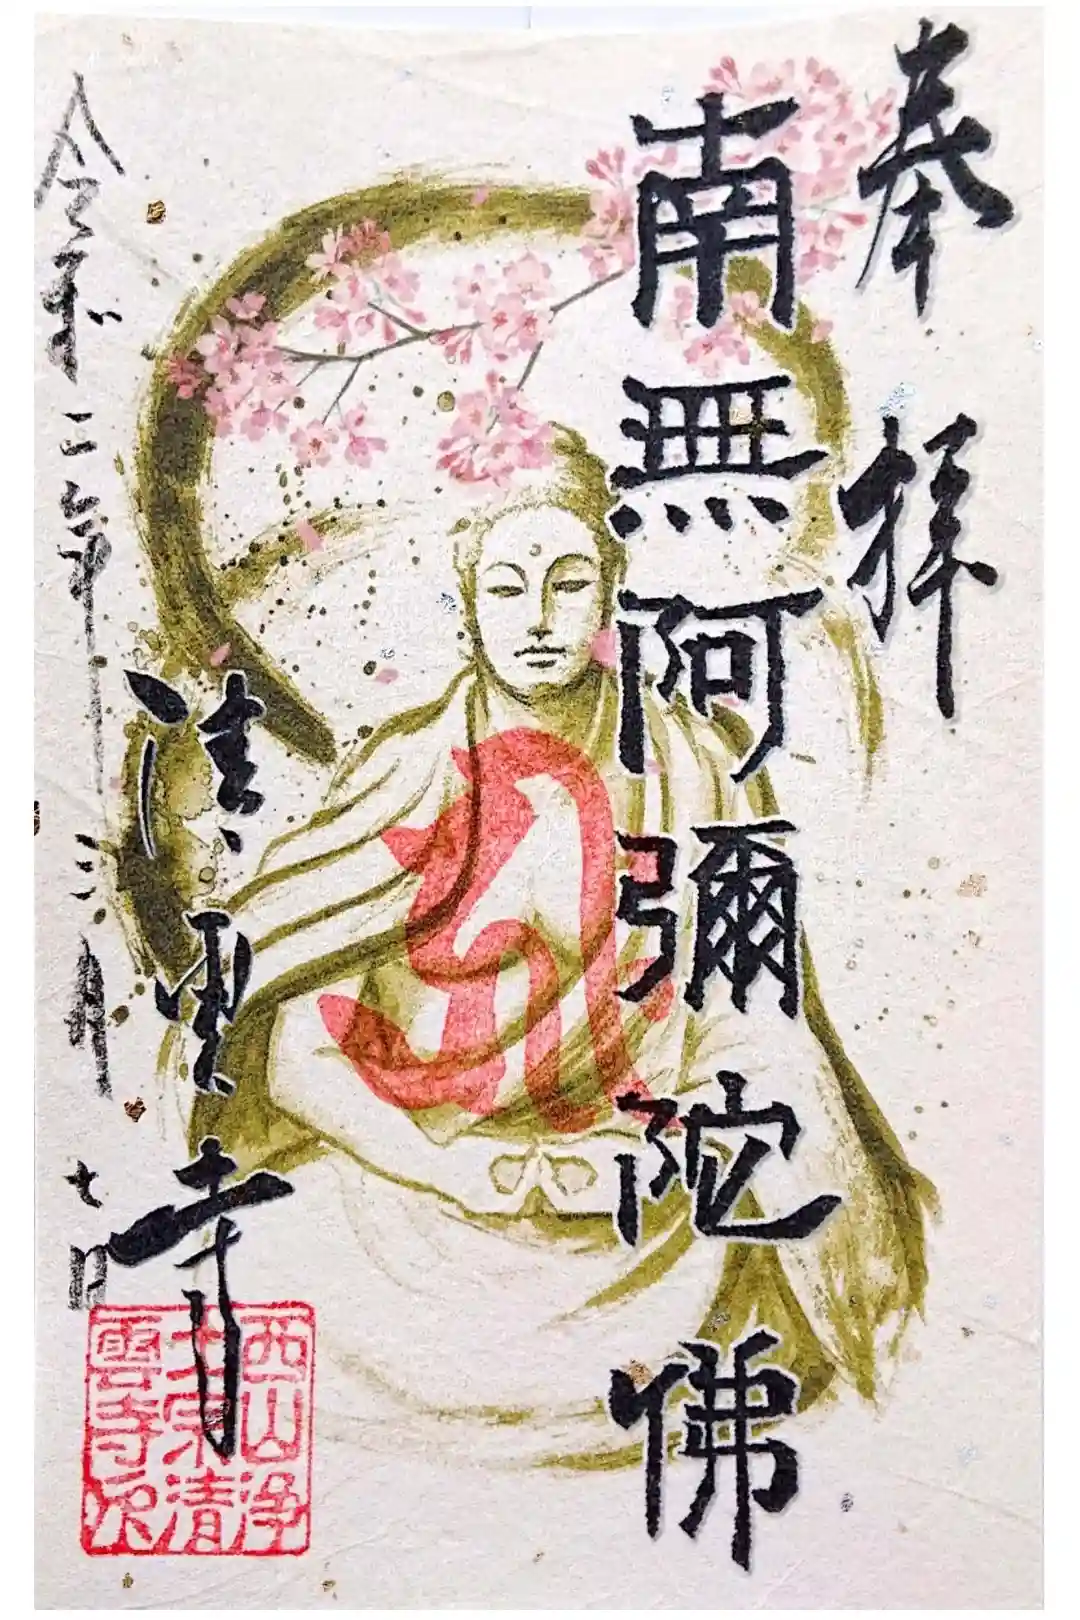 奉拝
南無阿彌陀佛
清雲寺
令和三年三月七日
西山浄
土宗清
雲寺印